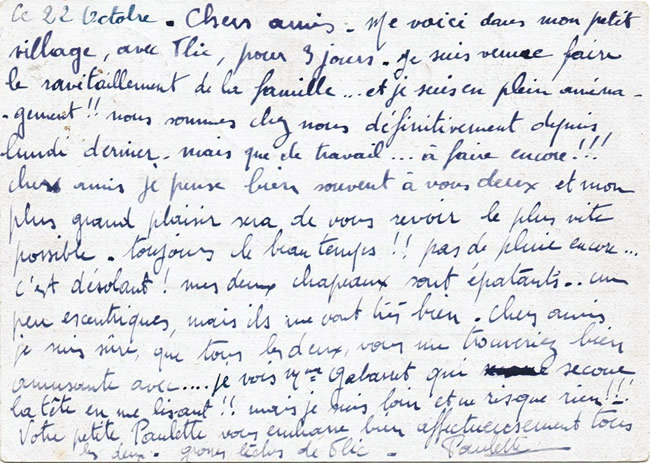 Ce 22 Octobre. Chers amis. Me voici dans mon petit
village, avec Flic, pour 3 jours. Je suis venue faire
le ravitaillement de la famille... et je suis en plein aména-
-gement!! nous sommes chez nous définitivement depuis
lundi dernier. mais que de travail... à faire encore!!!
chers amis je pense bien souvent à vous deux et mon
plus grand plaisir sera de vous revoir le plus vite
possible. toujours le beau temps!! pas de pluie encore...
c'est désolant! mes deux chapeaux sont épatants.. un
peu escentriques, mais ils me vont très bien. Chers amis
je suis sûre, que tous les deux, vous me trouveriez bien
amusante avec.... je vois Mme Gabarut qui secoue
la tête en me lisant!! mais je suis loin et ne risque rien!!!
Votre petite Paulette vous embrasse bien affectueusement tous
les deux. grosses de Flic. Paulette